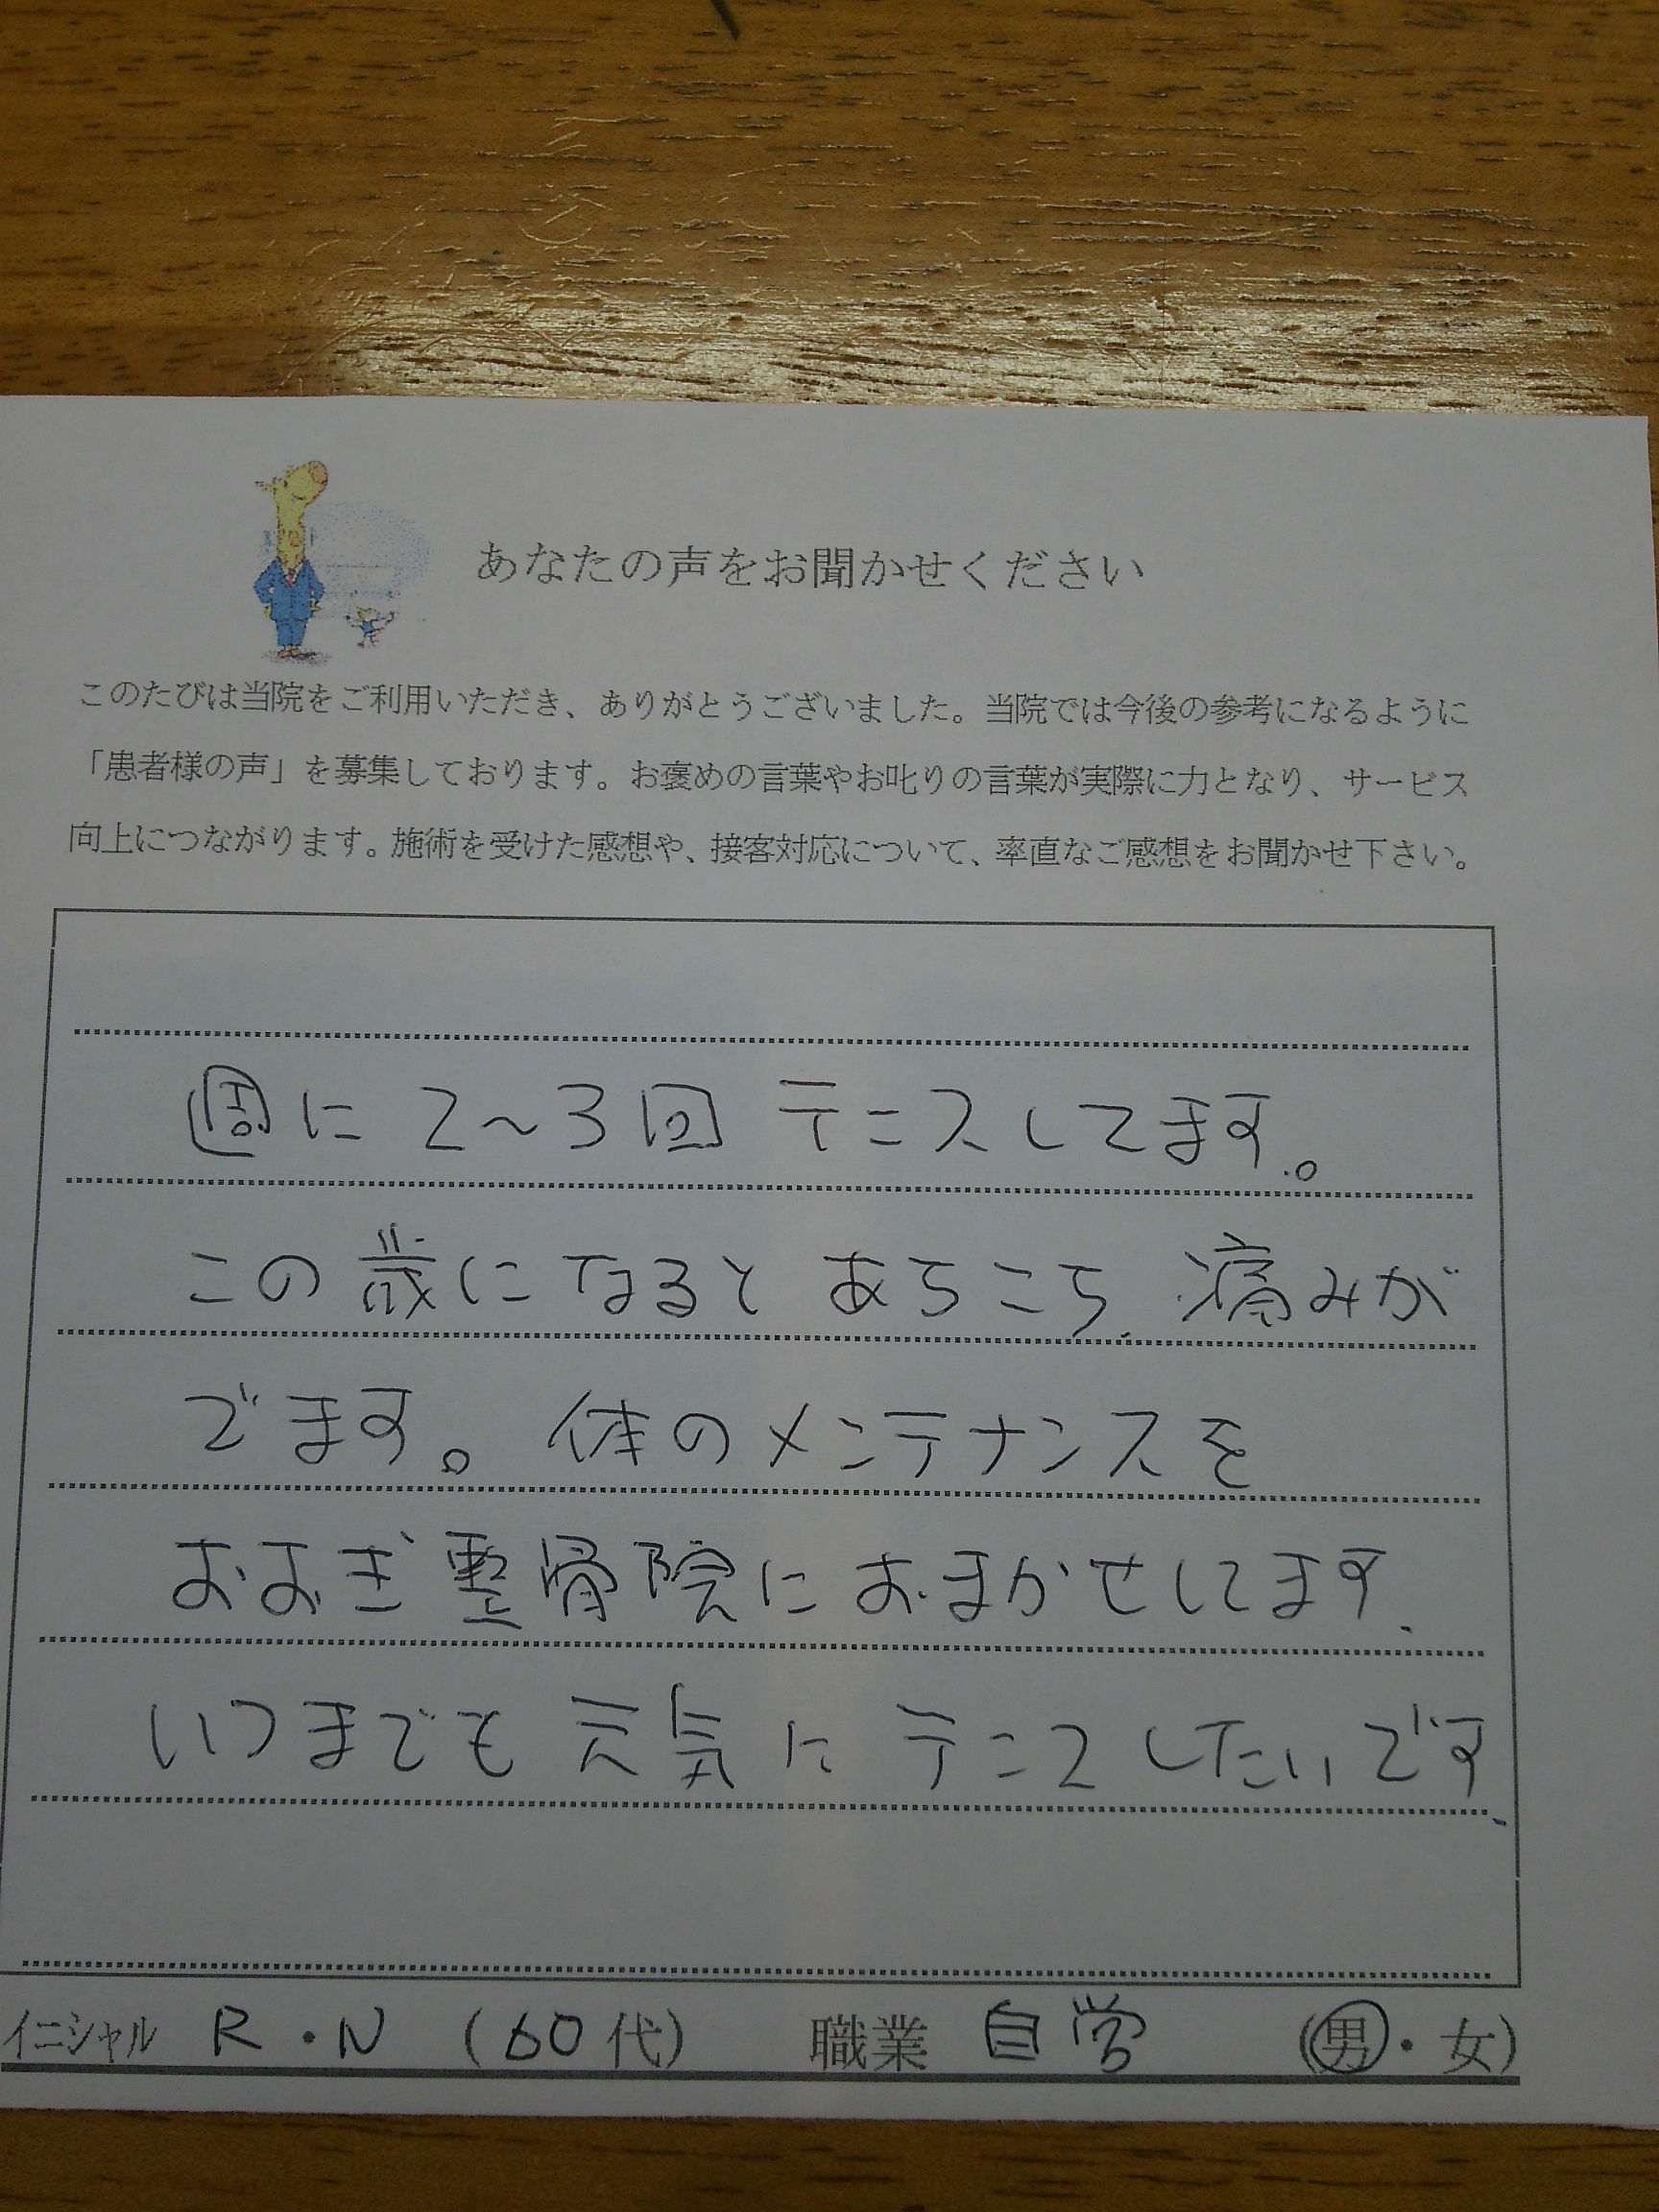 あなたの声をお聞かせください
このたびは当院をご利用いただき、ありがとうございました。当院では今後の参考になるように
「患者様の声」を募集しております。お褒めの言葉やお叱りの言葉が実際に力となり、サービス
向上につながります。施術を受けた感想や、接客対応について、率直なご感想をお聞かせ下さい。
週に2～3回 テニスしてます。
この歳になると あちこち 痛みが
でます。体のメンテナンスを
おおぎ整骨院におまかせしてます.
いつまでも 元気に テニスしたいです.
イニシャル R・N (60代) 職業 自営 (男・女)